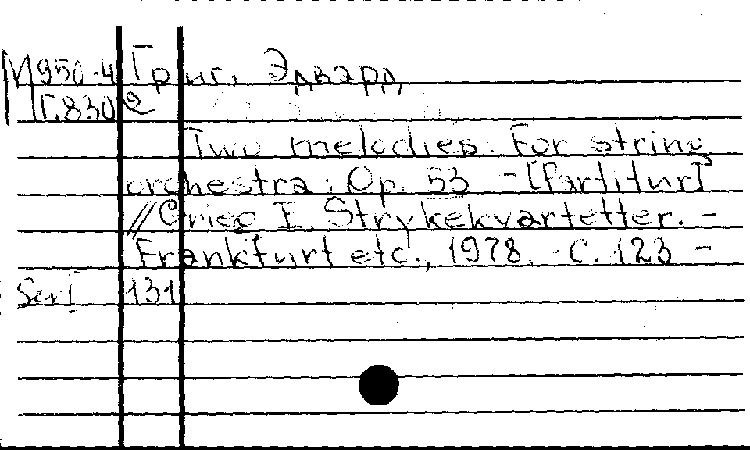 М950-4 Григ, Эдвард
Г.830
Two melodies. For string
orchestra; Op. 53 - [Partitur]
// Grieg E. Strykekvartetter. -
Frankfurt etc., 1978. - С. 123 -
131